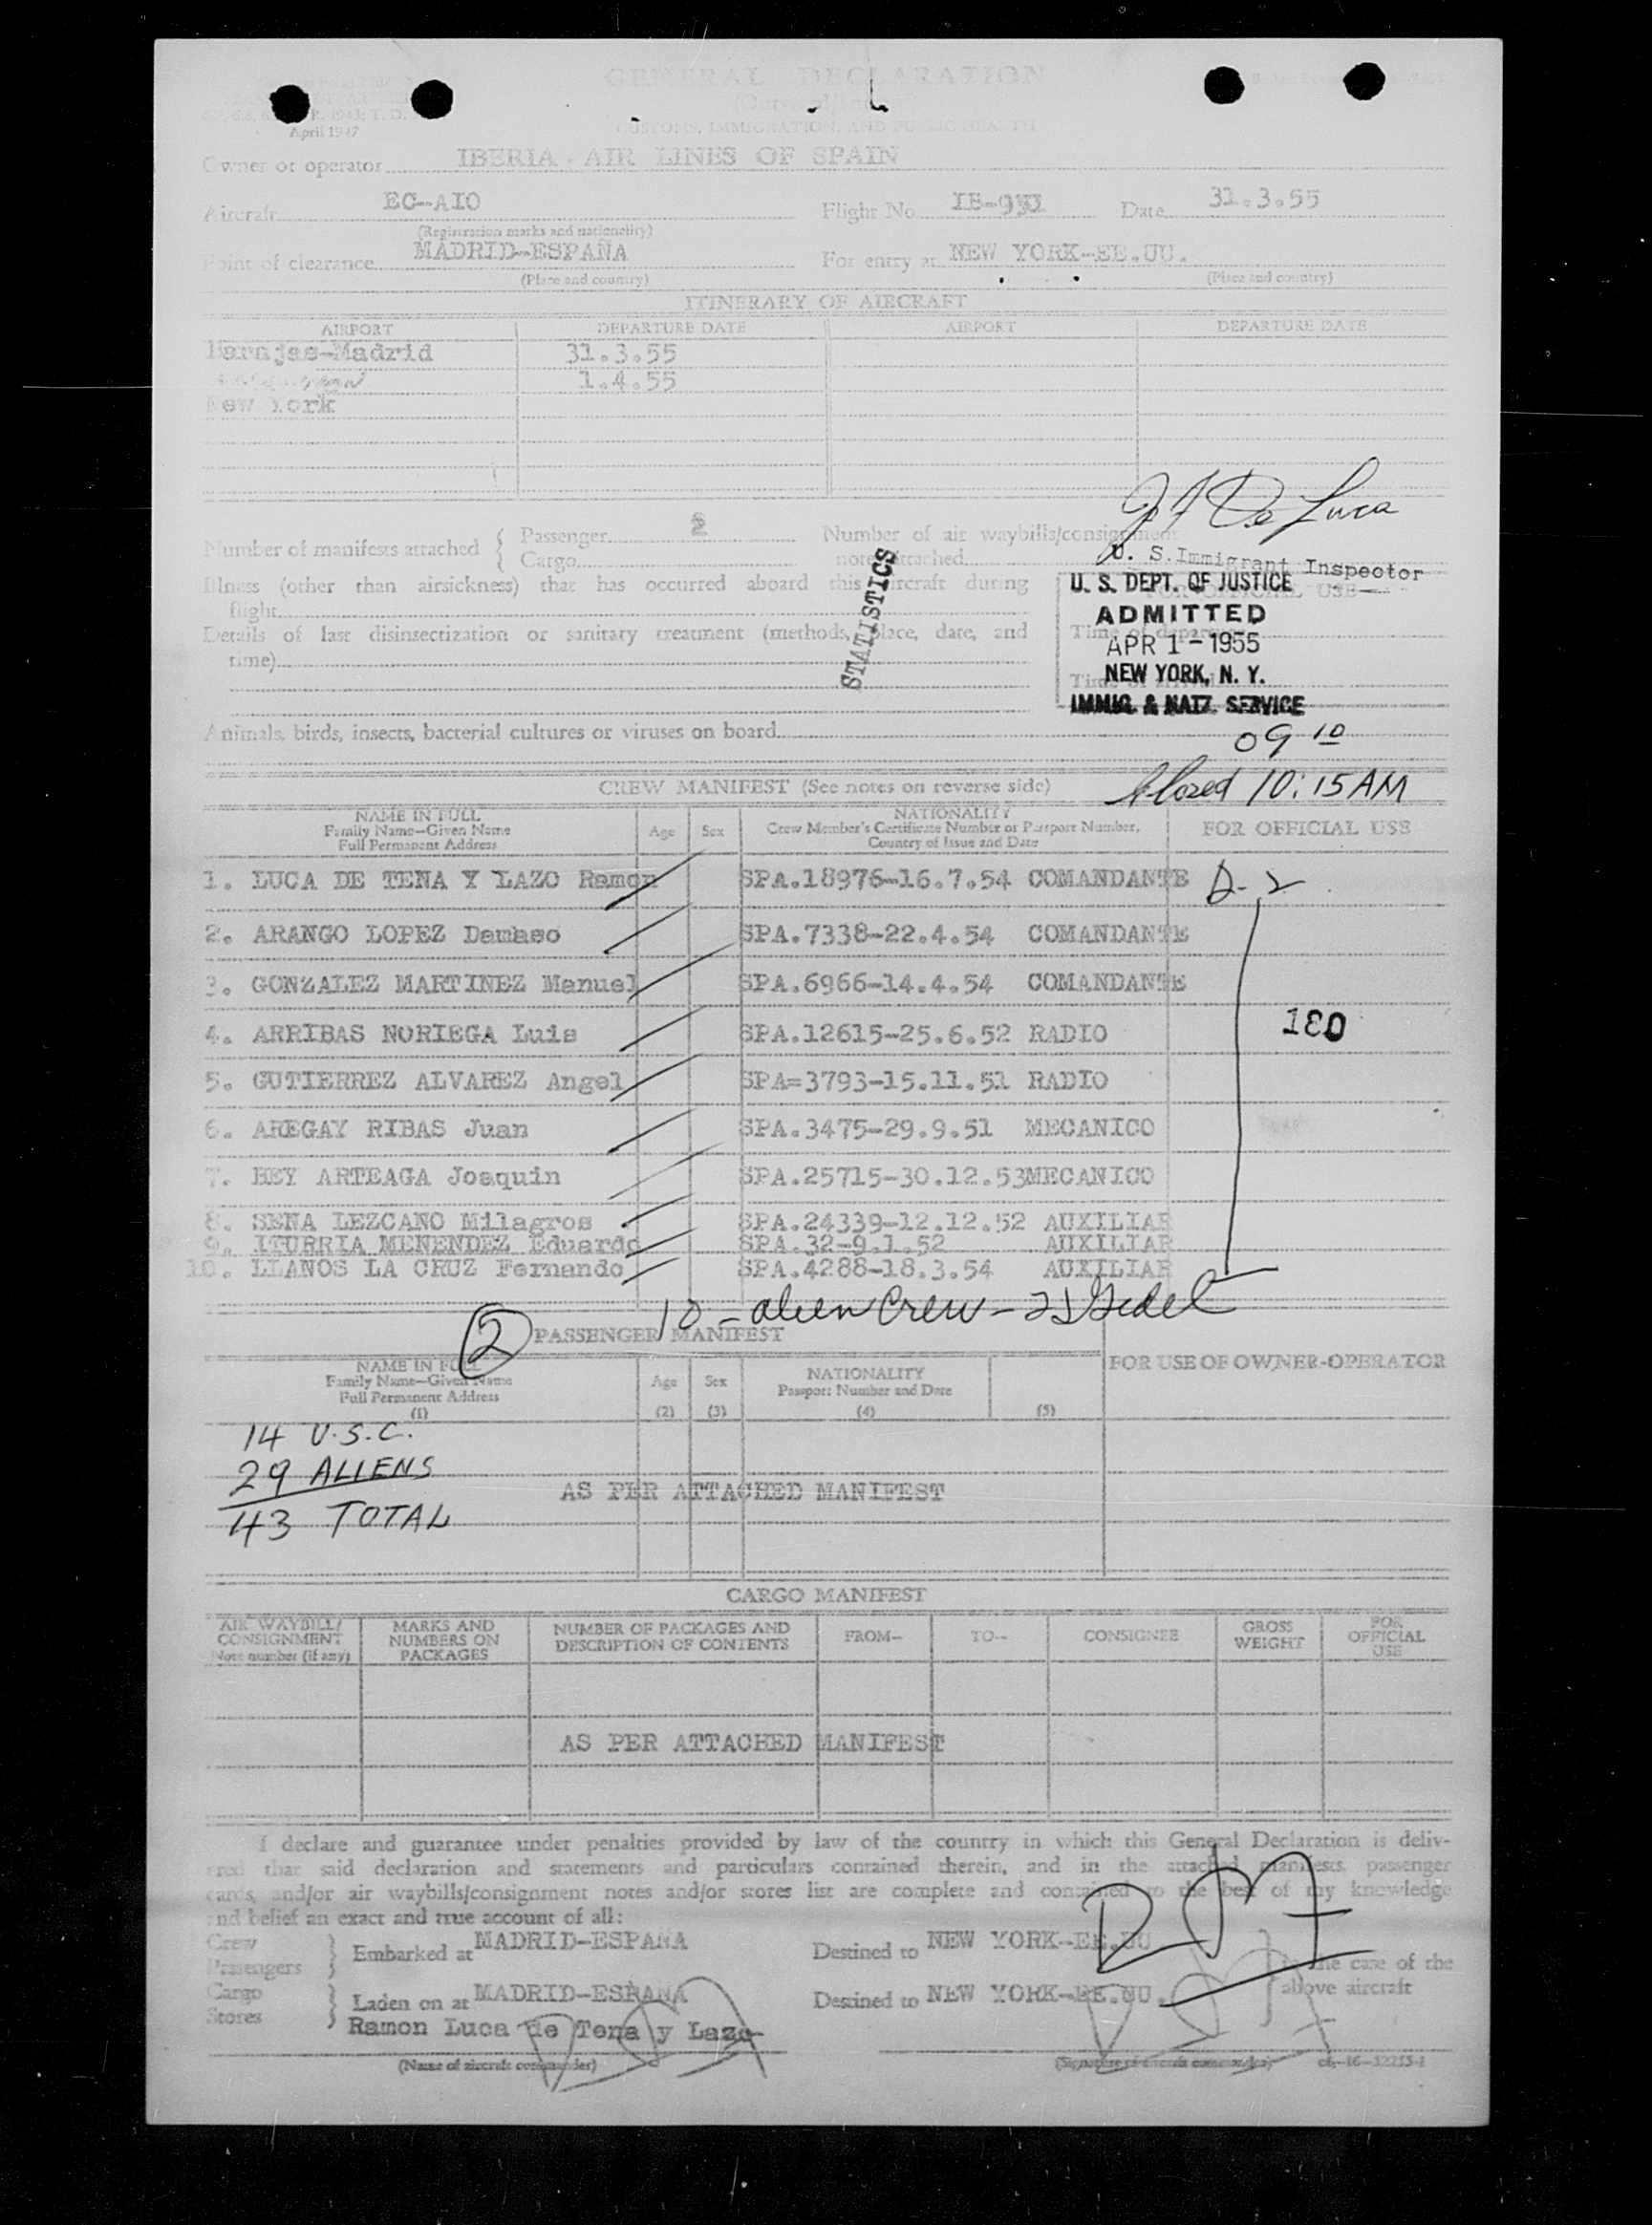 GENERAL DECLARATION
CUSTOMS, IMMIGRATION, AND PUBLIC HEALTH
April 1947
Owner or operator IBERIA AIR LINES OF SPAIN
Aircraft EC-AIO Flight No. IB-951 Date 31.3.55
(Registration marks and nationality)
Point of clearance MADRID-ESPAÑA For entry at NEW YORK-EE.UU.
(Place and country) (Place and country)
ITINERARY OF AIRCRAFT
AIRPORT DEPARTURE DATE AIRPORT DEPARTURE DATE
Barajas-Madrid 31.3.55
1.4.55
New York
J F De Luca
Number of manifests attached { Passenger 2 Number of air waybills/consignment
{ Cargo notes attached
U. S. Immigrant Inspector
Illness (other than airsickness) that has occurred aboard this aircraft during
flight
Details of last disinsectization or sanitary treatment (methods, place, date, and
time)
STATISTICS
FOR OFFICIAL USE
Time of departure
U. S. DEPT. OF JUSTICE
ADMITTED
APR 1-1955
NEW YORK, N. Y.
IMMIG. & NATZ. SERVICE
Animals, birds, insects, bacterial cultures or viruses on board
09 10
Closed 10:15 AM
CREW MANIFEST (See notes on reverse side)
NAME IN FULL
Family Name—Given Name
Full Permanent Address
Age Sex
NATIONALITY
Crew Member's Certificate Number or Passport Number,
Country of Issue and Date
FOR OFFICIAL USE
1. LUCA DE TENA Y LAZO Ramon SPA.18976-16.7.54 COMANDANTE D-2
2. ARANGO LOPEZ Damaso SPA.7338-22.4.54 COMANDANTE
3. GONZALEZ MARTINEZ Manuel SPA.6966-14.4.54 COMANDANTE
4. ARRIBAS NORIEGA Luis SPA.12615-25.6.52 RADIO 180
5. GUTIERREZ ALVAREZ Angel SPA=3793-15.11.51 RADIO
6. AREGAY RIBAS Juan SPA.3475-29.9.51 MECANICO
7. HEY ARTEAGA Joaquin SPA.25715-30.12.53MECANICO
8. SENA LEZCANO Milagros SPA.24339-12.12.52 AUXILIAR
9. ITURRIA MENENDEZ Eduardo SPA.32-9.1.52 AUXILIAR
10. LLANOS LA CRUZ Fernando SPA.4288-18.3.54 AUXILIAR
10 - alien crew -
2 PASSENGER MANIFEST
NAME IN FULL
Family Name—Given Name
Full Permanent Address
(1)
Age (2)
Sex (3)
NATIONALITY
Passport Number and Date
(4)
(5)
FOR USE OF OWNER-OPERATOR
14 U.S.C.
29 ALIENS
43 TOTAL
AS PER ATTACHED MANIFEST
CARGO MANIFEST
AIR WAYBILL/
CONSIGNMENT
Note number (if any)
MARKS AND
NUMBERS ON
PACKAGES
NUMBER OF PACKAGES AND
DESCRIPTION OF CONTENTS
FROM— TO— CONSIGNEE
GROSS
WEIGHT
FOR
OFFICIAL
USE
AS PER ATTACHED MANIFEST
I declare and guarantee under penalties provided by law of the country in which this General Declaration is deliv-
ered that said declaration and statements and particulars contained therein, and in the attached manifests, passenger
cards, and/or air waybills/consignment notes and/or stores list are complete and contained to the best of my knowledge
and belief an exact and true account of all:
Crew
Passengers } Embarked at MADRID-ESPAÑA Destined to NEW YORK-EE.UU
in the case of the
above aircraft
Cargo
Stores } Laden on at MADRID-ESPAÑA Destined to NEW YORK-EE.UU.
Ramon Luca de Tena y Lazo
(Name of aircraft commander) (Signature of aircraft commander)